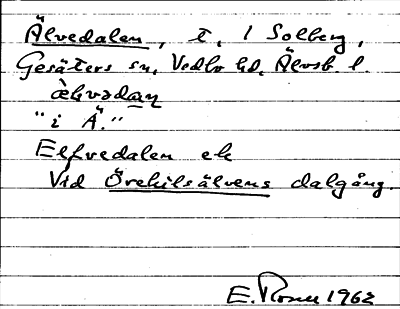 Älvedalen, t, 1 Solberg,
Gesäters sn, Vedbo hd, Älvsb. l.
"i Ä."
Elfvedalen ek
Vid Örekilsälvens dalgång.
E. Rosen 1962